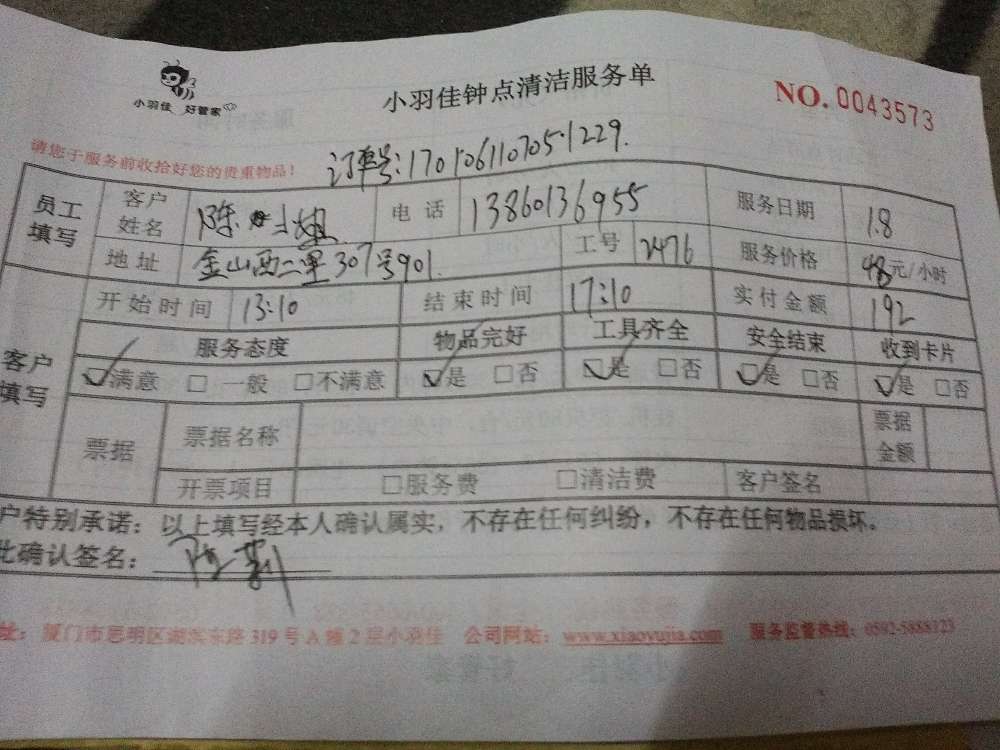 小羽佳 好管家
小羽佳钟点清洁服务单
NO. 0043573
请您于服务前收拾好您的贵重物品!
订单号:170106110705·1229.
员工填写 客户姓名 陈 小姐 电话 13860136955 服务日期 1.8
地址 金山西二里307号901. 工号 2476 服务价格 48元/小时
开始时间 13:10 结束时间 17:10 实付金额 192
客户填写 服务态度 物品完好 工具齐全 安全结束 收到卡片
☑满意 □一般 □不满意 ☑是 □否 ☑是 □否 ☑是 □否 ☑是 □否
票据 票据名称 票据金额
开票项目 □服务费 □清洁费 客户签名
户特别承诺:以上填写经本人确认属实,不存在任何纠纷,不存在任何物品损坏。
此确认签名:陈莉
址:厦门市思明区湖滨东路319号A幢2层小羽佳 公司网站:www.xiaoyujia.com 服务监督热线:0592-5888123